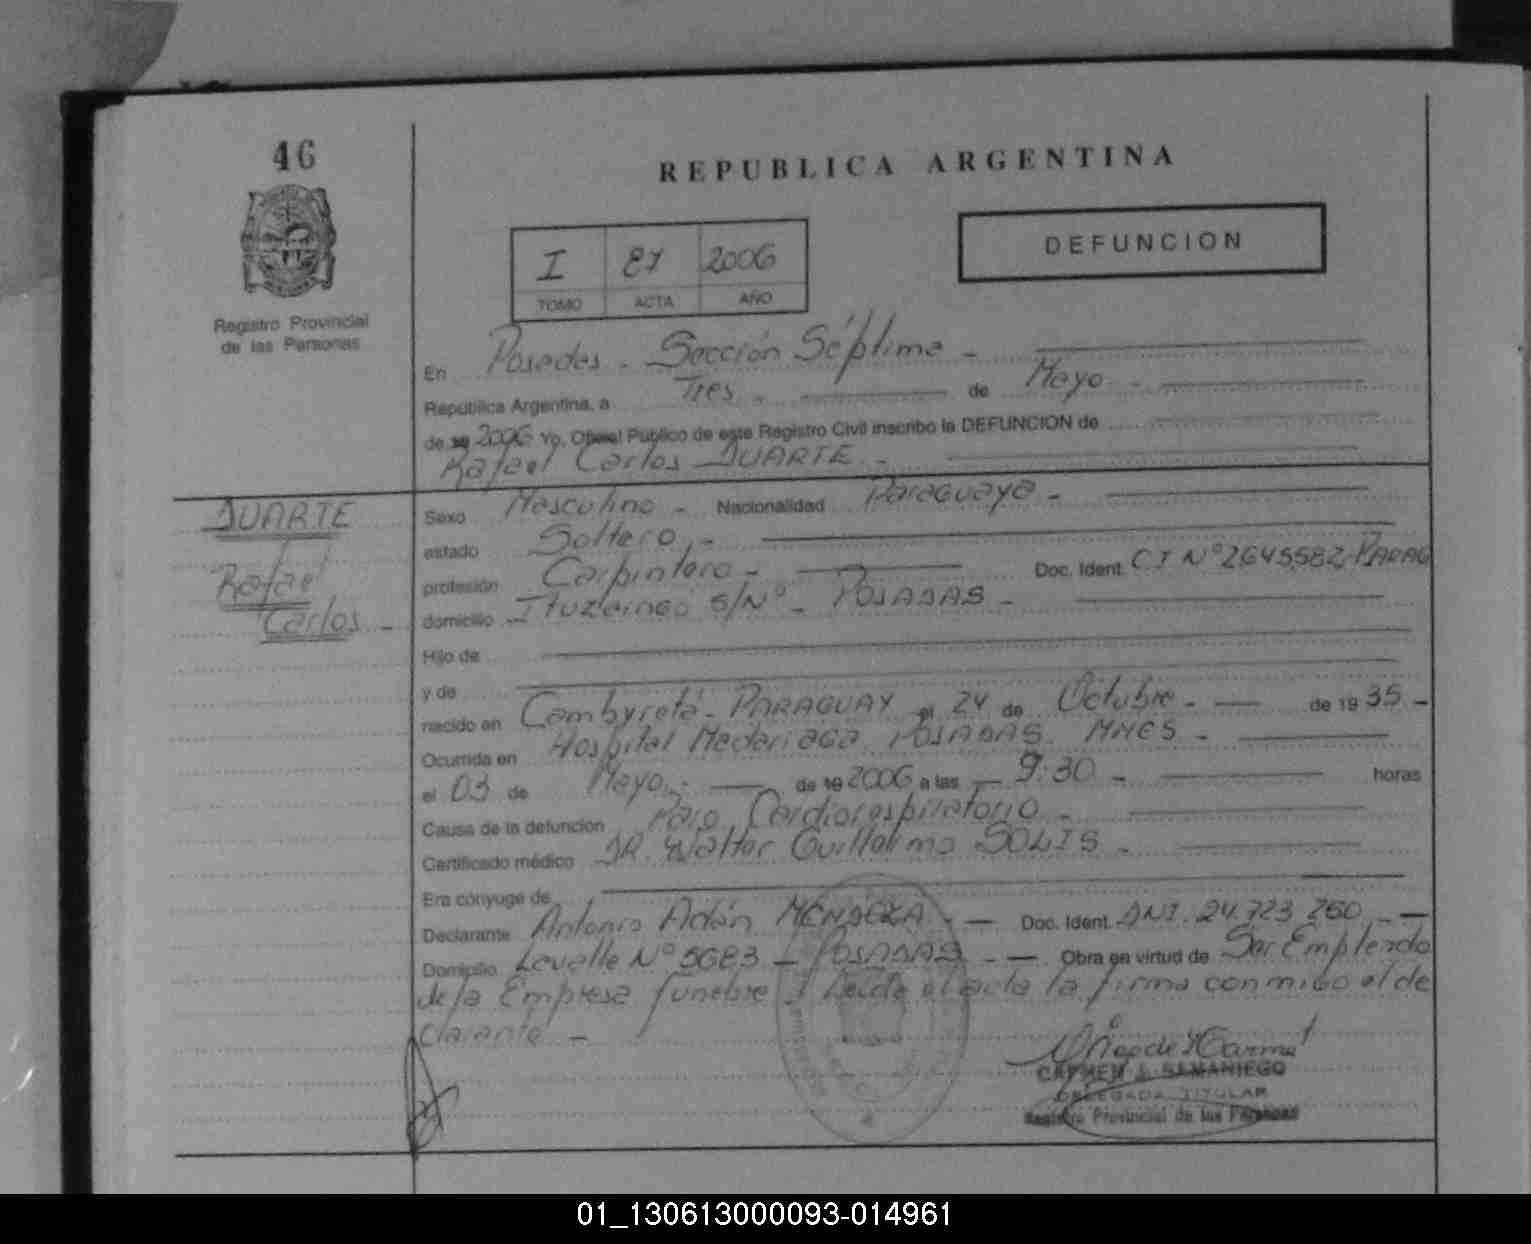 46
REPUBLICA ARGENTINA
DEFUNCION
I 87 2006
TOMO ACTA AÑO
Registro Provincial
de las Personas
En Posadas - Sección Séptima -
República Argentina, a Tres - de Mayo -
de 19 2006 Yo, Oficial Público de este Registro Civil inscribo la DEFUNCION de
Rafael Carlos DUARTE -
DUARTE
Rafael
Carlos -
Sexo Masculino - Nacionalidad Paraguaya -
estado Soltero -
profesión Carpintero - Doc. Ident. CI Nº 2.645.582, PARAG
domicilio Ituzaingo S/Nº - POSADAS -
Hijo de
y de
nacido en Cambyretá - PARAGUAY el 24 de Octubre - de 19 35 -
Ocurrida en Hospital Madariaga POSADAS MNES -
el 03 de Mayo - de 19 2006 a las 9:30 - horas
Causa de la defunción Paro Cardiorespiratorio -
Certificado médico DR. Walter Guillermo SOLIS -
Era cónyuge de
Declarante Antonio Adán MENDOZA - Doc. Ident. DNI. 24.723.260 -
Domicilio Lavalle Nº 5683 - POSADAS - Obra en virtud de Ser Empleado
de la Empresa funebre Leída el acta la firma conmigo el de
clarante -
CARMEN J. SAMANIEGO
DELEGADA TITULAR
Registro Provincial de las Personas
01_130613000093-014961